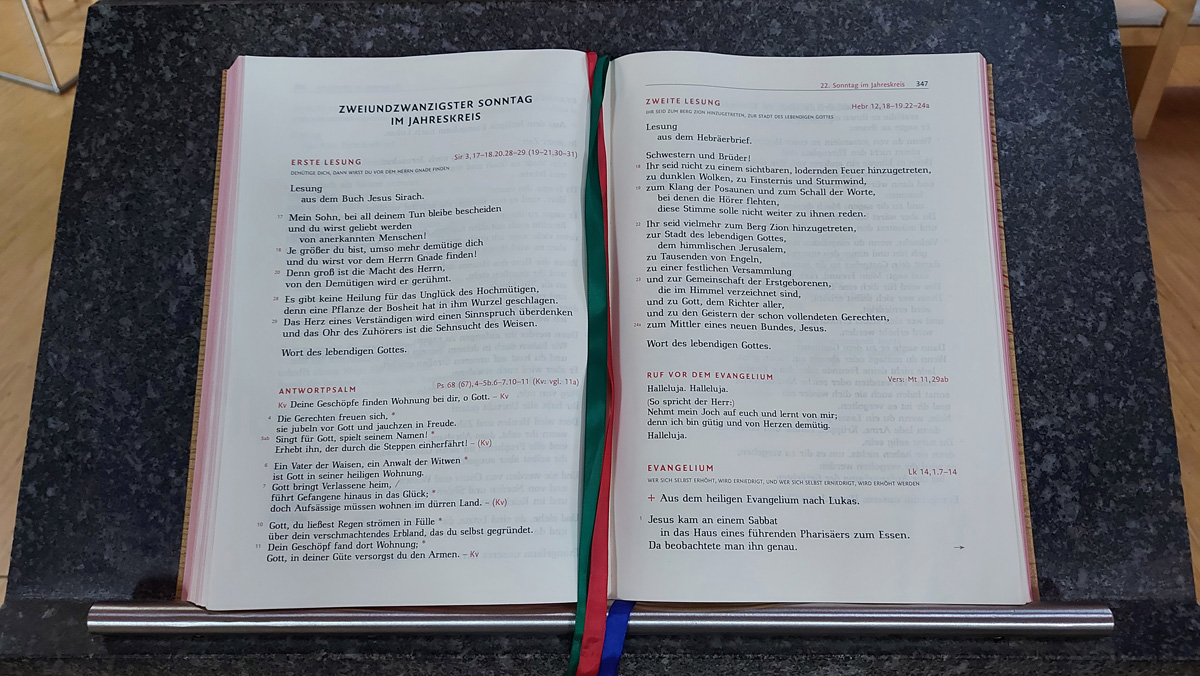 ZWEIUNDZWANZIGSTER SONNTAG
IM JAHRESKREIS
ERSTE LESUNG
Sir 3,17–18.20.28–29 (19–21.30–31)
DEMÜTIGE DICH, DANN WIRST DU VOR DEM HERRN GNADE FINDEN
Lesung
aus dem Buch Jesus Sirach.
17 Mein Sohn, bei all deinem Tun bleibe bescheiden
und du wirst geliebt werden
von anerkannten Menschen!
18 Je größer du bist, umso mehr demütige dich
und du wirst vor dem Herrn Gnade finden!
20 Denn groß ist die Macht des Herrn,
von den Demütigen wird er gerühmt.
28 Es gibt keine Heilung für das Unglück des Hochmütigen,
denn eine Pflanze der Bosheit hat in ihm Wurzel geschlagen.
29 Das Herz eines Verständigen wird einen Sinnspruch überdenken
und das Ohr des Zuhörers ist die Sehnsucht des Weisen.
Wort des lebendigen Gottes.
ANTWORTPSALM
Ps 68 (67),4–5b.6–7.10–11 (Kv: vgl. 11a)
Kv Deine Geschöpfe finden Wohnung bei dir, o Gott. – Kv
4 Die Gerechten freuen sich, *
sie jubeln vor Gott und jauchzen in Freude.
5ab Singt für Gott, spielt seinem Namen! *
Erhebt ihn, der durch die Steppen einherfährt! – (Kv)
6 Ein Vater der Waisen, ein Anwalt der Witwen *
ist Gott in seiner heiligen Wohnung.
7 Gott bringt Verlassene heim, /
führt Gefangene hinaus in das Glück; *
doch Aufsässige müssen wohnen im dürren Land. – (Kv)
10 Gott, du ließest Regen strömen in Fülle *
über dein verschmachtetes Erbland, das du selbst gegründet.
11 Dein Geschöpf fand dort Wohnung; *
Gott, in deiner Güte versorgst du den Armen. – Kv
22. Sonntag im Jahreskreis 347
ZWEITE LESUNG
Hebr 12,18–19.22–24a
IHR SEID ZUM BERG ZION HINZUGETRETEN, ZUR STADT DES LEBENDIGEN GOTTES
Lesung
aus dem Hebräerbrief.
Schwestern und Brüder!
18 Ihr seid nicht zu einem sichtbaren, lodernden Feuer hinzugetreten,
zu dunklen Wolken, zu Finsternis und Sturmwind,
19 zum Klang der Posaunen und zum Schall der Worte,
bei denen die Hörer flehten,
diese Stimme solle nicht weiter zu ihnen reden.
22 Ihr seid vielmehr zum Berg Zion hinzugetreten,
zur Stadt des lebendigen Gottes,
dem himmlischen Jerusalem,
zu Tausenden von Engeln,
zu einer festlichen Versammlung
23 und zur Gemeinschaft der Erstgeborenen,
die im Himmel verzeichnet sind,
und zu Gott, dem Richter aller,
und zu den Geistern der schon vollendeten Gerechten,
24a zum Mittler eines neuen Bundes, Jesus.
Wort des lebendigen Gottes.
RUF VOR DEM EVANGELIUM
Vers: Mt 11,29ab
Halleluja. Halleluja.
(So spricht der Herr:)
Nehmt mein Joch auf euch und lernt von mir;
denn ich bin gütig und von Herzen demütig.
Halleluja.
EVANGELIUM
Lk 14,1.7–14
WER SICH SELBST ERHÖHT, WIRD ERNIEDRIGT, UND WER SICH SELBST ERNIEDRIGT, WIRD ERHÖHT WERDEN
+ Aus dem heiligen Evangelium nach Lukas.
1 Jesus kam an einem Sabbat
in das Haus eines führenden Pharisäers zum Essen.
Da beobachtete man ihn genau. →